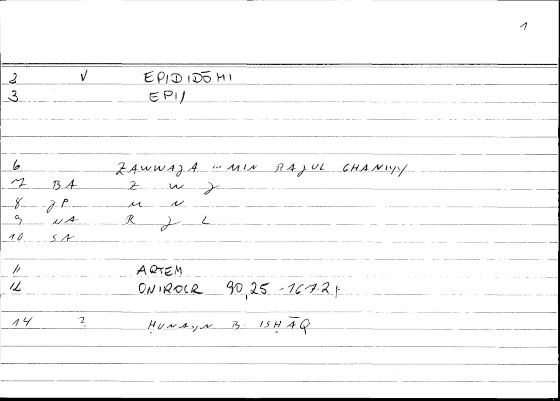 1
2 V EPIDIDŌMI
3 EPI/
6 ZAWWAJA ... MIN RAJUL GHANIYY
7 BA Z W J
8 JP M N
9 NA R J L
10 SA
11 ARTEM
12 ONIROCR 90,25 - 167.2f
14 2 ḤUNAYN B. ISḤĀQ